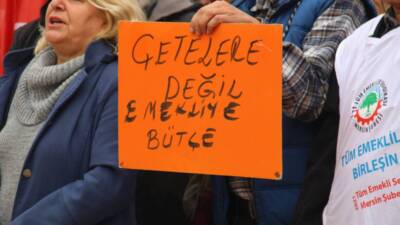 ÇETELERE
DEĞİL
EMEKLİYE
BÜTÇE
TÜM EMEKLİL
BİRLEŞİN
Tüm Emekli Se
Mersin Şube